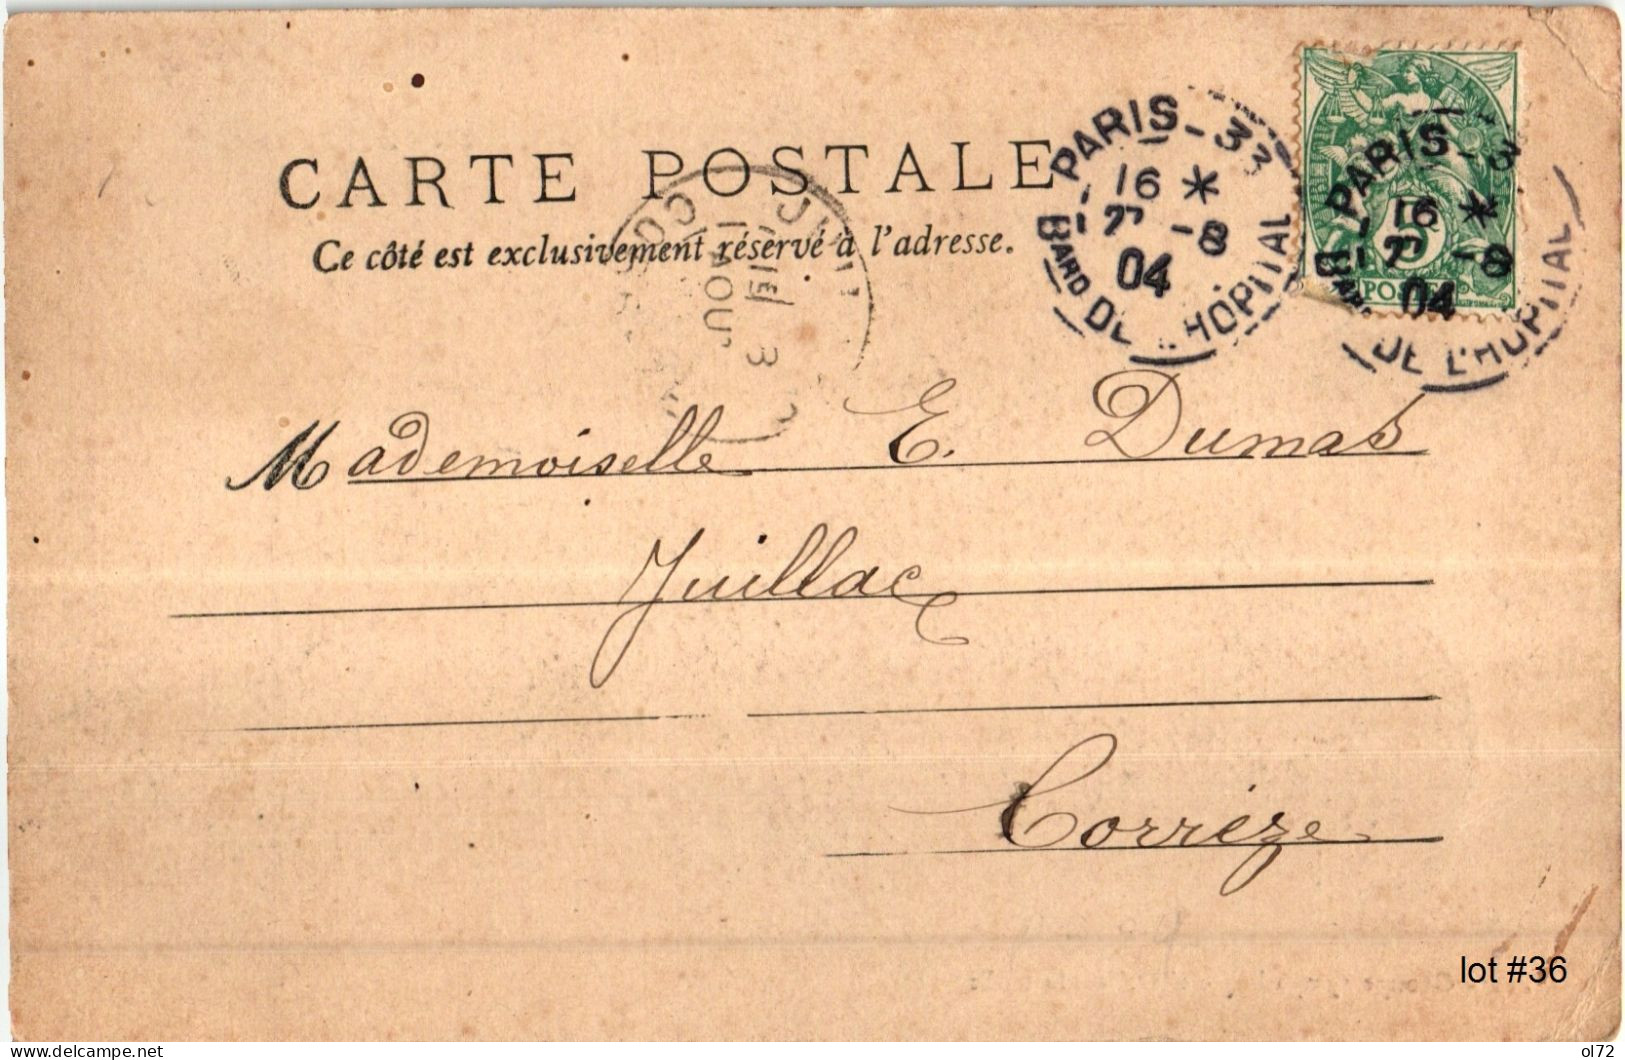 CARTE POSTALE
Ce côté est exclusivement réservé à l'adresse.
PARIS - 33
16 *
7 -8
04
BARD DE L'HOPITAL
PARIS - 3
16 *
7 -8
04
DE L'HOPITAL
5
POSTES
Mademoiselle E. Dumas
Juillac
Corrèze
lot #36
www.delcampe.net
ol72